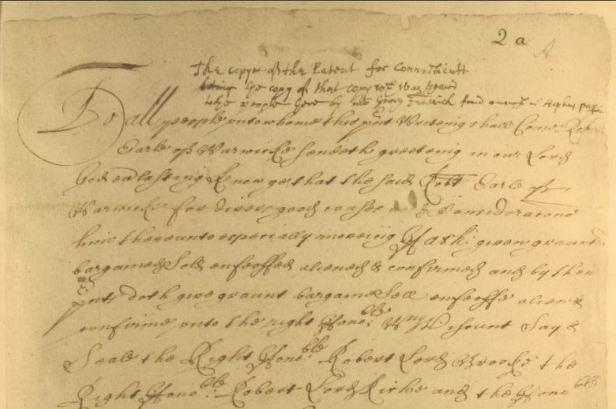 2 a
The copye of the Patent for Connecticutt
being ye copy of that copy wch was found
by Mr
To all people unto whome this pnt Writeing shall Come
Earle of Warwicke sendeth greeteing in our Lord
God everlasting Know ye that the said Robt Earle of
Warwicke for divers good causes & Consideracons
him thereunto especially moveing Hath given graunted
bargained Sold enfeoffed aliened & confirmed and by these
pnts doth give graunt bargaine Sell enfeoffe aliene &
confirme unto the right Honoble Wm Viscount Say &
Seale the Right Honoble Robert Lord Brooke the
Right Honoble Robert Lord Riche and the Honoble